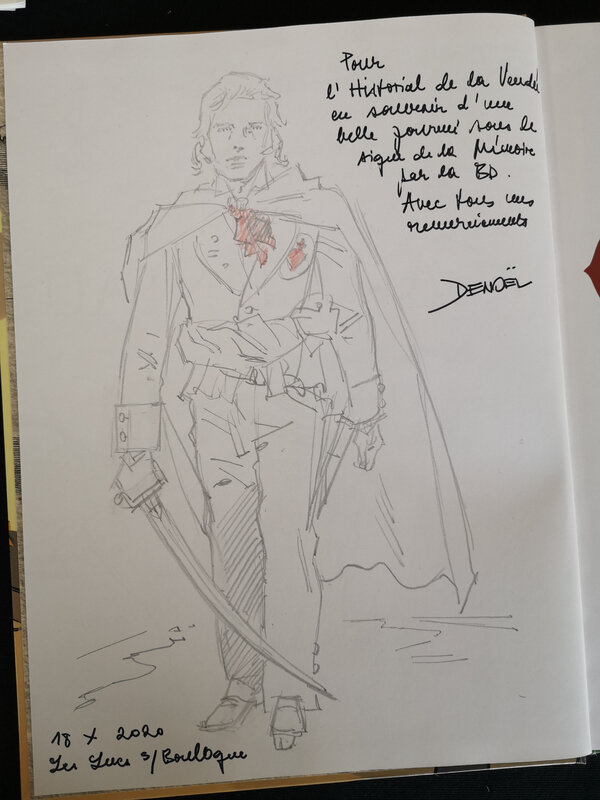 Pour
l'Historial de la Vendée
en souvenir d'une
belle journée sous le
signe de la Mémoire
par la BD.
Avec tous mes
remerciements
DENOËL
18 X 2020
Les Lucs s/Boulogne